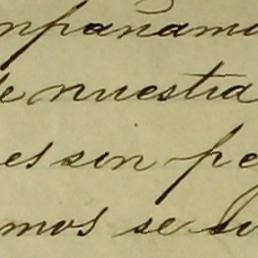 mpañamo
de nuestra
es sin pe
mos se su